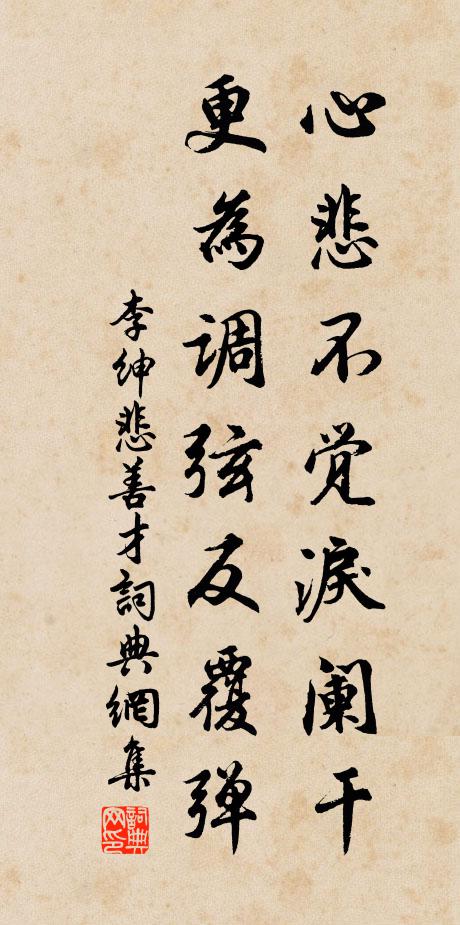 心悲不觉淚阑干
更為调弦反覆弹
李绅悲善才詞典網集
詞典
网印